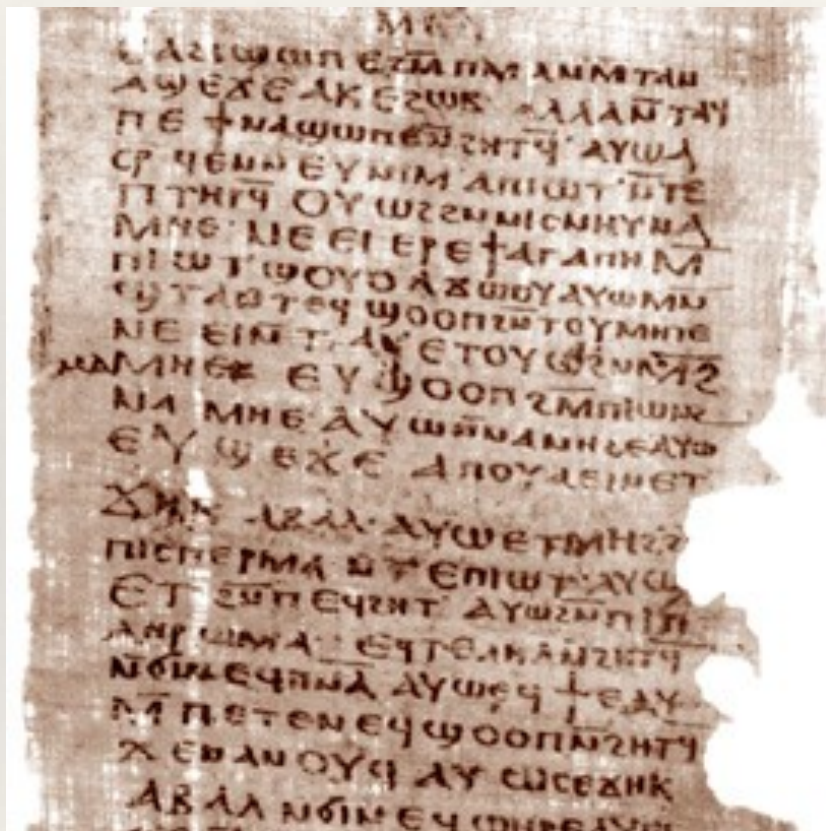 ⲉⲁϩⲓϣⲱⲡⲉ ϩⲙ̄ ⲡⲙⲁ ⲛ̄ⲙⲧⲁⲛ
ⲁϣⲉϫⲉ ⲁⲕⲉϩⲱⲃ ⲁⲗⲗⲁ ⲛ̄ⲧⲁϥ
ⲡⲉϯⲛⲁϣⲱⲡⲉ ⲛ̄ϩⲏⲧϥ̄ ⲁⲩⲱ ⲁ
ⲥⲣϥⲉ ⲛ̄ⲛⲉⲩ ⲛⲓⲙ ⲁⲡⲓⲱⲧ ⲛ̄ⲧⲉ
ⲡⲧⲏⲣϥ̄ ⲟⲩⲱϩ ϩⲛ̄ ⲛⲓⲥⲛⲏⲩ ⲛⲁ
ⲙⲏⲉ ⲛⲉⲉⲓ ⲉⲣⲉϯⲁⲅⲁⲡⲏ ⲙ̄
ⲡⲓⲱⲧ ϣⲟⲩⲟ ⲁϫⲱⲟⲩ ⲁⲩⲱ ⲙⲛ̄
ϣⲧⲁ ⲛ̄ⲧⲉϥ ϣⲟⲟⲡ ϩⲛ̄ ⲧⲟⲩⲙⲏⲧⲉ
ⲛⲉⲉⲓ ⲛ̄ⲧⲁⲩ ⲉⲧⲟⲩⲱⲛϩ
ⲙⲁⲙⲏⲉ ⲉⲩϣⲟⲟⲡ ϩⲙ̄ ⲡⲓⲱⲛϩ
ⲛⲁⲙⲏⲉ ⲁⲩⲱ ⲛ̄ⲛⲁⲛⲏϩⲉ ⲁⲩⲱ
ⲉⲩϣⲉϫⲉ ⲁⲡⲟⲩⲁⲉⲓⲛ ⲉⲧ
ϫⲏⲕ ⲁⲃⲁⲗ ⲁⲩⲱ ⲉⲧⲙⲏϩ ϩ
ⲡⲓⲥⲡⲉⲣⲙⲁ ⲛ̄ⲧⲉ ⲡⲓⲱⲧ ⲁⲩⲱ
ⲉⲧϩⲙ̄ ⲡⲉϥϩⲏⲧ ⲁⲩⲱ ϩⲙ̄ ⲡⲓⲡ
ⲗⲏⲣⲱⲙⲁ ⲉϥⲧⲉⲗⲏⲗ ⲛ̄ϩⲏⲧϥ̄
ⲛ̄ϭⲓ ⲡⲉϥⲡⲛ̄ⲁ̄ ⲁⲩⲱ ⲉϥϯⲉⲁⲩ
ⲙ̄ⲡⲉⲧⲉⲛⲉϥϣⲟⲟⲡ ⲛ̄ϩⲏⲧϥ̄
ϫⲉ ⲛⲁⲛⲟⲩϥ ⲁⲩⲱ ⲥⲉϫⲏⲕ
ⲁⲃⲁⲗ ⲛ̄ϭⲓ ⲛⲉϥϣⲏⲣⲉ ⲁⲩⲱ